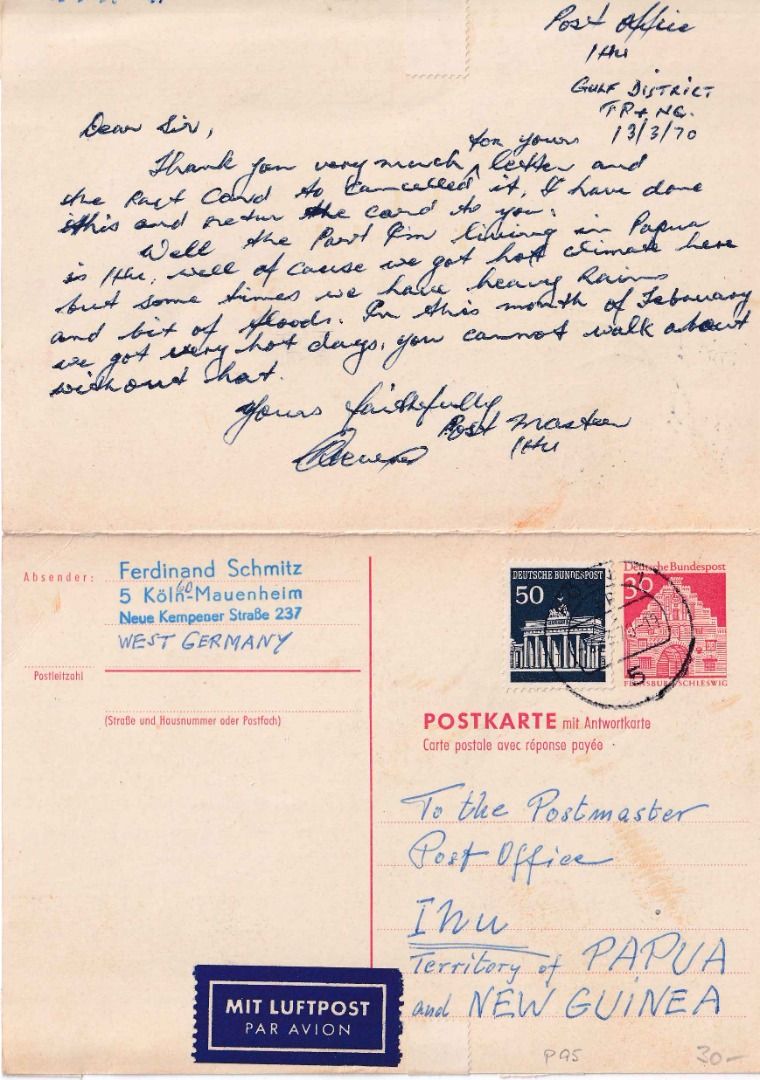 Post Office
IHU
GULF DISTRICT
TP+NG.
13/3/70
Dear Sir,
for yours
Thank you very much ^ letter and
the Post Card to cancelled it, I have done
this and retur the card to you.
Well the Part I'm living in Papua
is IHU, well of cause we got hot climate here
but some times we have heavy Rains
and bit of floods. In this month of February
we got very hot days, you cannot walk about
without hat.
Yours faithfully
Post Master
IHU
Absender:
Ferdinand Schmitz
5 Köln-Mauenheim
60
Neue Kempener Straße 237
WEST GERMANY
Postleitzahl
(Straße und Hausnummer oder Postfach)
DEUTSCHE BUNDESPOST
50
Deutsche Bundespost
30
FLENSBURG/SCHLESWIG
5
POSTKARTE mit Antwortkarte
Carte postale avec réponse payée
To the Postmaster
Post Office
Ihu
Territory of PAPUA
and NEW GUINEA
MIT LUFTPOST
PAR AVION
P95
30-